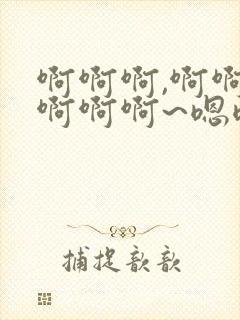 啊啊啊,啊啊
啊啊啊~嗯
捕捉歆歆